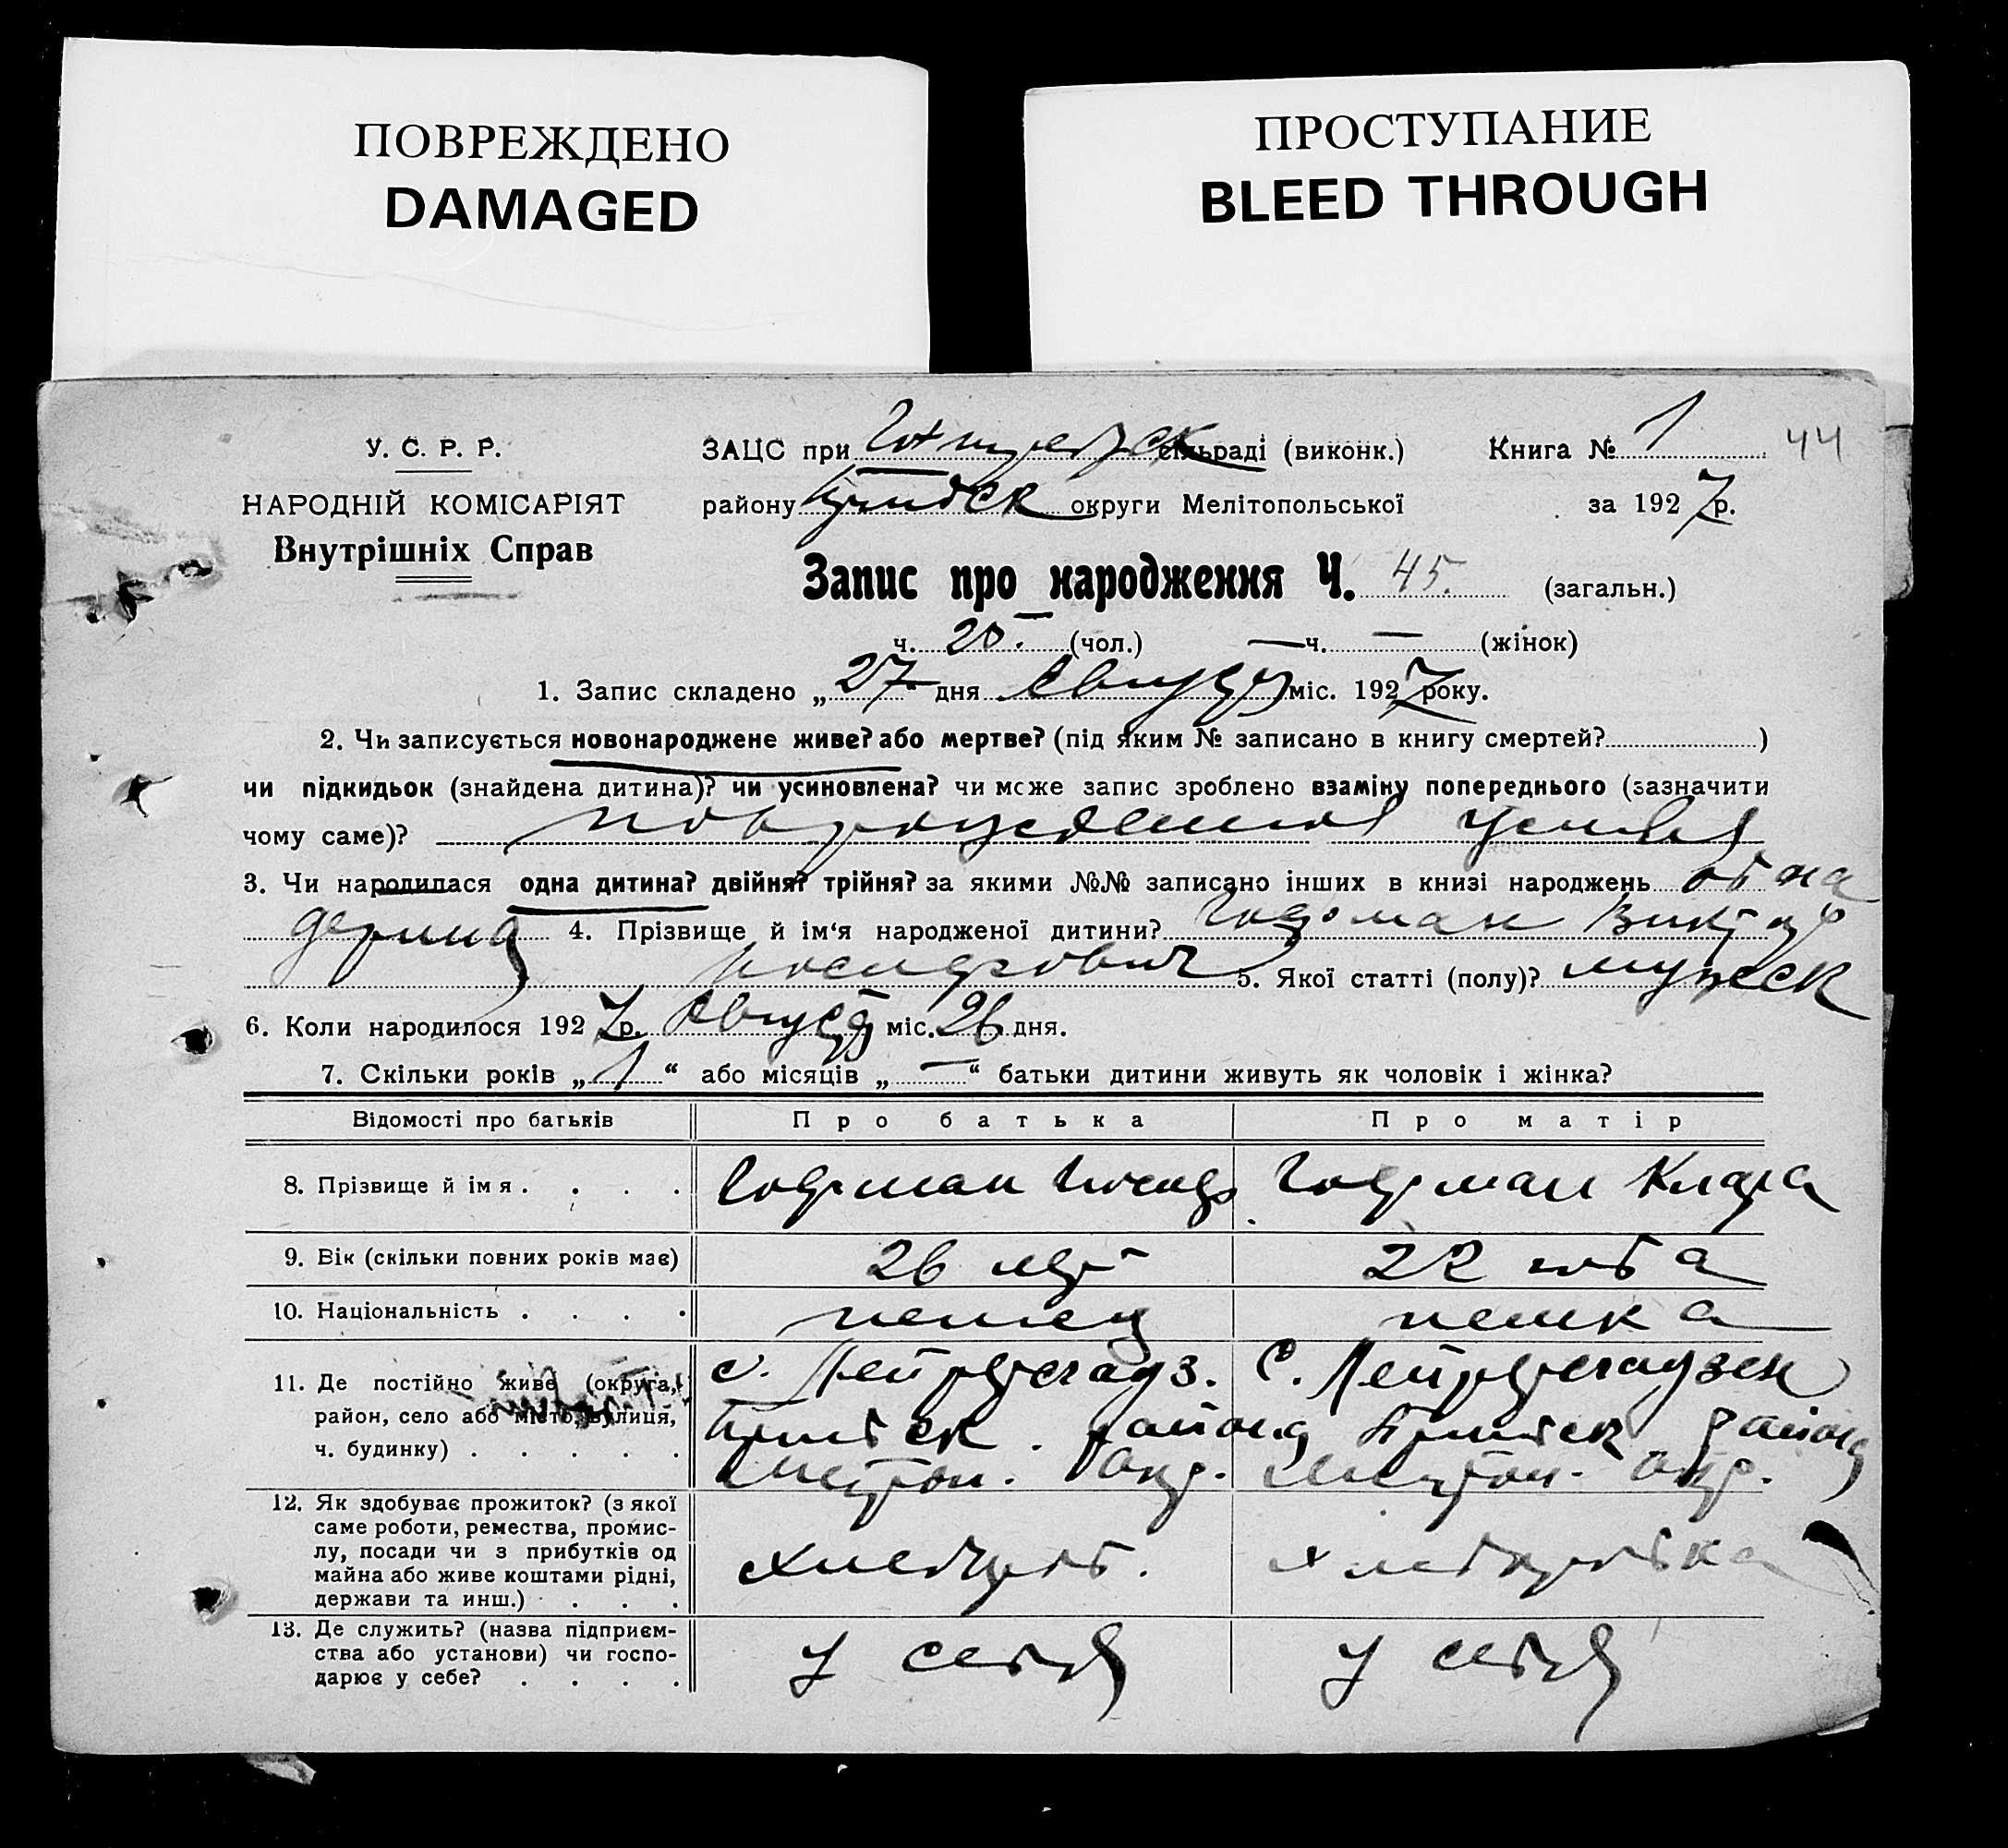 ПОВРЕЖДЕНО
DAMAGED
ПРОСТУПАНИЕ
BLEED THROUGH
У. С. Р. Р.
НАРОДНІЙ КОМІСАРІЯТ
Внутрішніх Справ
ЗАЦС при сільраді (виконк.) Книга № 1 44
району округи Мелітопольської за 1927 р.
Запис про народження Ч. 45. (загальн.)
ч. 25 (чол.) — ч. — (жінок)
1. Запис складено „27“ дня Августа міс. 1927 року.
2. Чи записується новонароджене живе? або мертве? (під яким № записано в книгу смертей? )
чи підкидьок (знайдена дитина)? чи усиновлена? чи може запис зроблено взаміну попереднього (зазначити
чому саме)?
3. Чи народилася одна дитина? двійня? трійня? за якими №№ записано інших в книзі народжень
4. Прізвище й ім‘я народженої дитини? Гофман Виктор
Иосифович 5. Якої статті (полу)? мужеск
6. Коли народилося 1927 р. Августа міс. 26 дня.
7. Скільки років „1“ або місяців „—“ батьки дитини живуть як чоловік і жінка?
Відомості про батьків Про батька Про матір
8. Прізвище й імя . . . . Гофман Иосиф Гофман Клара
9. Вік (скільки повних років має) 26 лет 22 года
10. Національність . . . . немец немка
11. Де постійно живе (округа,
район, село або місто, вулиця,
ч. будинку) . . . . .
с. Лейтерсгауз. С. Лейтерсгаузен
района района
Мелитоп. Окр. Мелитоп. Окр.
12. Як здобуває прожиток? (з якої
саме роботи, ремества, промис-
лу, посади чи з прибутків од
майна або живе коштами рідні,
держави та инш.) . . . .
хлебороб. хлеборобка
13. Де служить? (назва підприєм-
ства або установи) чи госпо-
дарює у себе? . . . .
у себя у себя